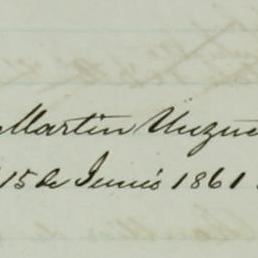 Martin Unzue
15 de Junio 1861